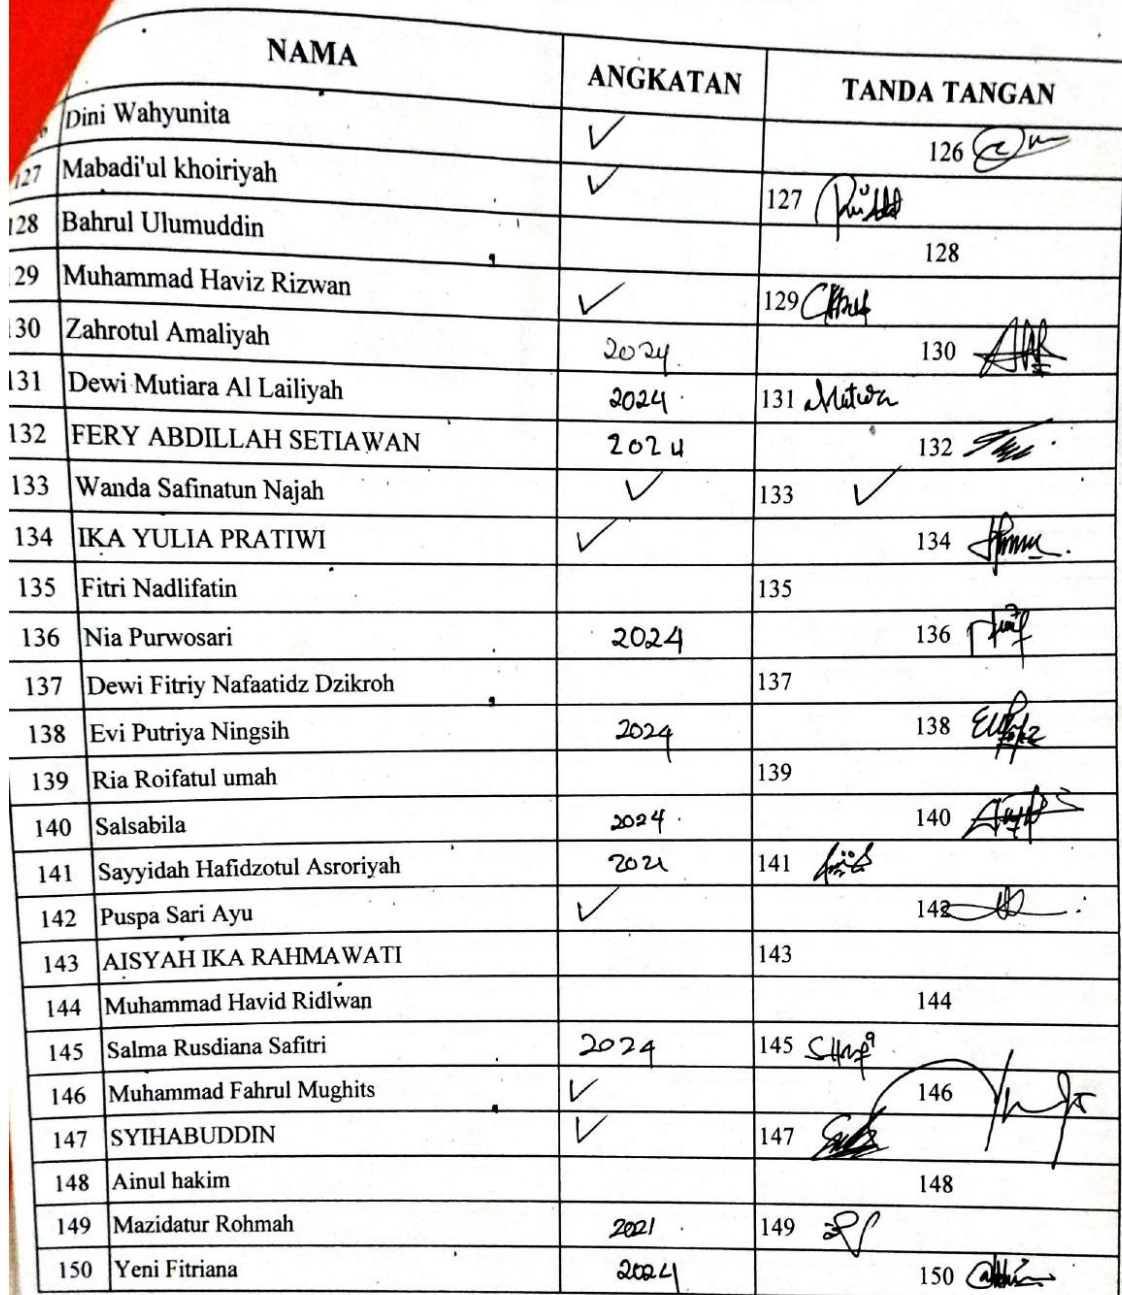 NAMA ANGKATAN TANDA TANGAN
Dini Wahyunita ✓ 126
127 Mabadi'ul khoiriyah ✓ 127
128 Bahrul Ulumuddin 128
29 Muhammad Haviz Rizwan ✓ 129
130 Zahrotul Amaliyah 2024 130
131 Dewi Mutiara Al Lailiyah 2024 131
132 FERY ABDILLAH SETIAWAN 2024 132
133 Wanda Safinatun Najah ✓ 133 ✓
134 IKA YULIA PRATIWI ✓ 134
135 Fitri Nadlifatin 135
136 Nia Purwosari 2024 136
137 Dewi Fitriy Nafaatidz Dzikroh 137
138 Evi Putriya Ningsih 2024 138
139 Ria Roifatul umah 139
140 Salsabila 2024 140
141 Sayyidah Hafidzotul Asroriyah 141
142 Puspa Sari Ayu ✓ 142
143 AISYAH IKA RAHMAWATI 143
144 Muhammad Havid Ridlwan 144
145 Salma Rusdiana Safitri 2024 145
146 Muhammad Fahrul Mughits ✓ 146
147 SYIHABUDDIN ✓ 147
148 Ainul hakim 148
149 Mazidatur Rohmah 2021 149
150 Yeni Fitriana 2024 150